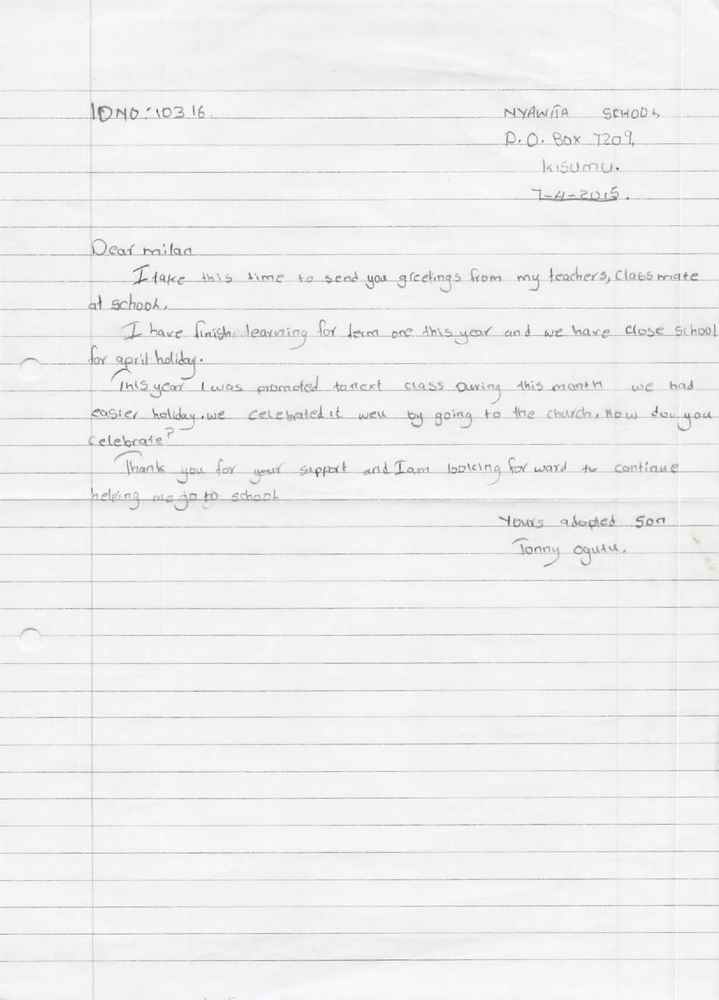 IDNO: 10316.
NYAWITA SCHOOL,
P.O. Box 7209,
KISUMU.
7-4-2015.
Dear milan
I take this time to send you greetings from my teachers, Classmate
at school.
I have finish learning for term one this year and we have close school
for april holiday.
This year I was promoted to next class During this month we had
easter holiday. we celebrated it well by going to the church. How dou you
celebrate?
Thank you for your support and I am looking for ward to continue
helping me go to school
Yours adopted son
Tonny ogutu.